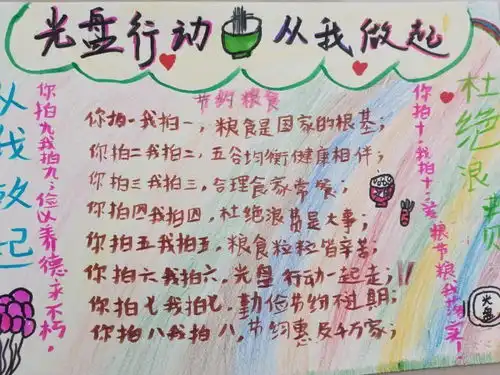 光盘行动 从我做起
节约粮食
你拍一我拍一，粮食是国家的根基；
你拍二我拍二，五谷均衡健康相伴；
你拍三我拍三，合理食家常餐；
你拍四我拍四，杜绝浪费是大事；
你拍五我拍五，粮食粒粒皆辛苦；
你拍六我拍六，光盘行动一起走；
你拍七我拍七，勤俭节约不过期；
你拍八我拍八，节约惠及千万家；
你拍九我拍九，俭以养德永不朽，
你拍十，我拍十，爱粮节粮我
从我做起
杜绝浪费
光盘